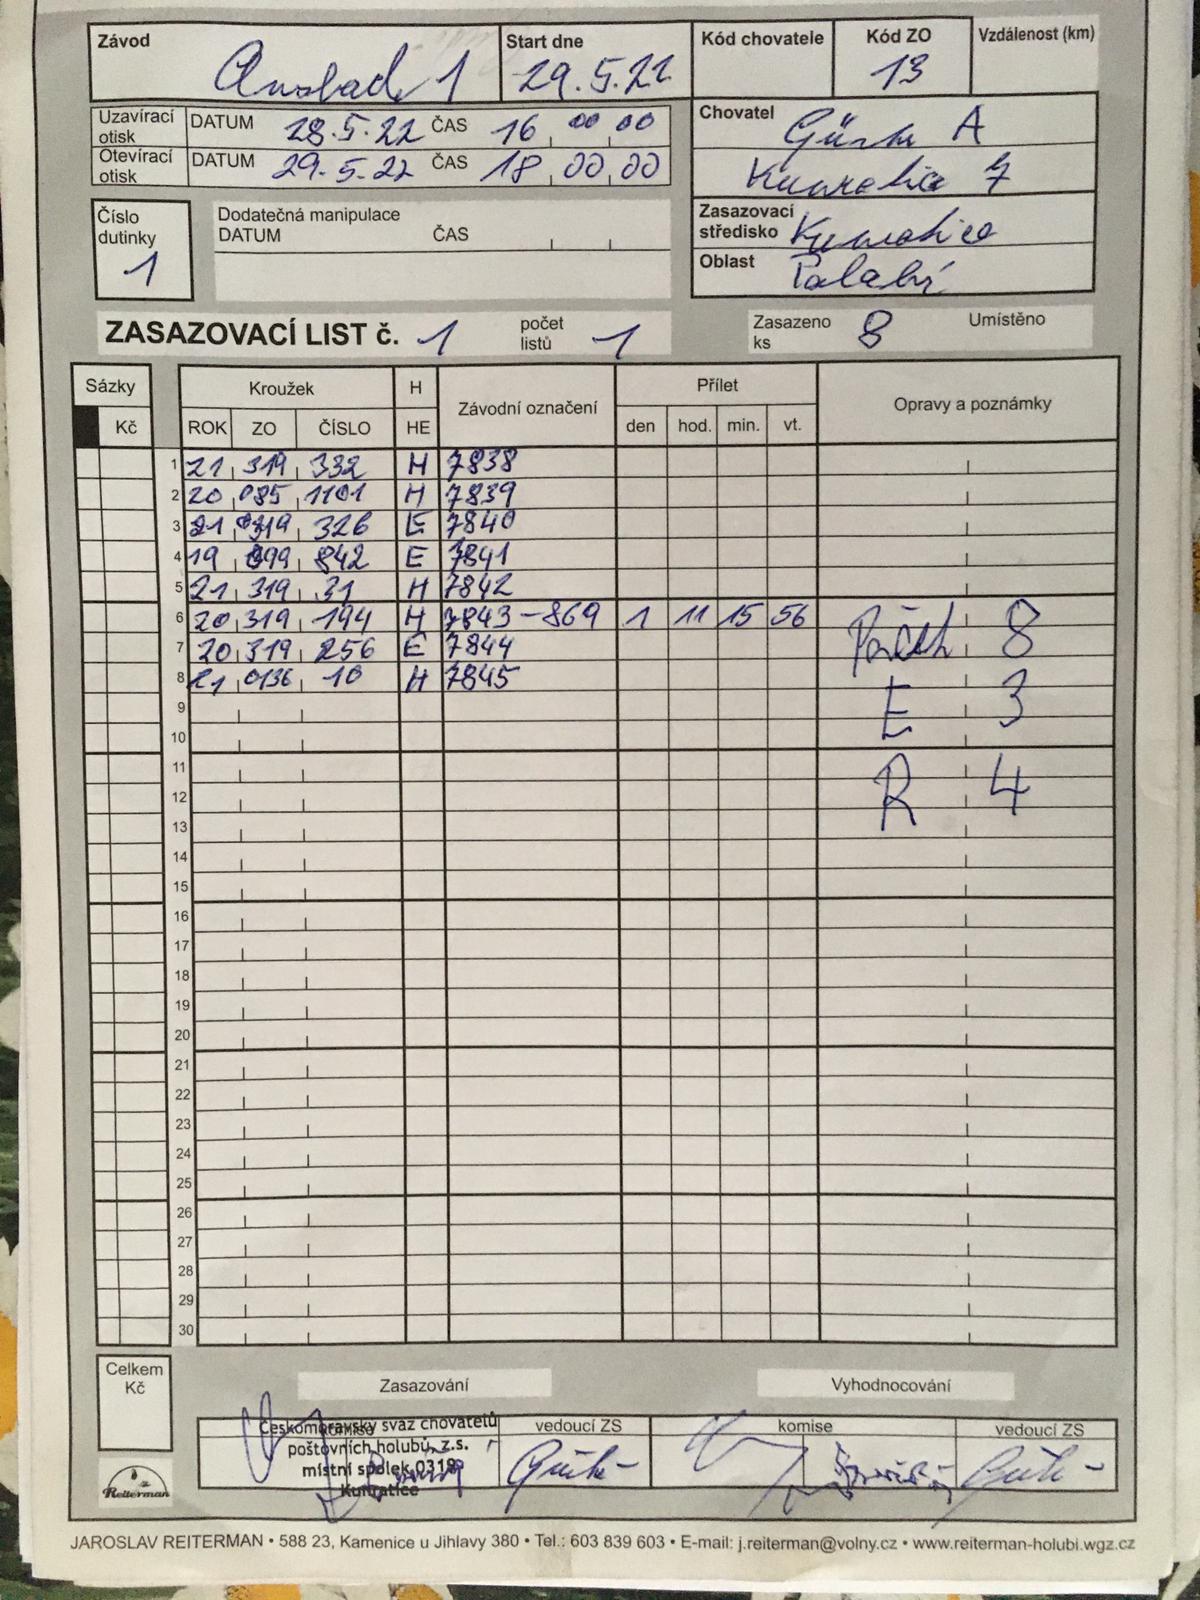 Závod Start dne Kód chovatele Kód ZO Vzdálenost (km)
Ansbach 1 29.5.22 13
Uzavírací otisk DATUM 28.5.22 ČAS 16 00 00
Otevírací otisk DATUM 29.5.22 ČAS 18 00 00
Chovatel
A
Kunratice 7
Číslo dutinky
1
Dodatečná manipulace
DATUM ČAS
Zasazovací středisko Kunratice
Oblast Polabí
ZASAZOVACÍ LIST č. 1 počet listů 1 Zasazeno ks 8 Umístěno
Sázky Kroužek H Závodní označení Přílet Opravy a poznámky
Kč ROK ZO ČÍSLO HE den hod. min. vt.
1 21 319 332 H 7838
2 20 085 1101 H 7839
3 21 0319 326 E 7840
4 19 099 842 E 7841
5 21 319 31 H 7842
6 20 319 194 H 7843-869 1 11 15 56
7 20 319 256 E 7844
8 21 0136 10 H 7845
Počet 8
E 3
R 4
9
10
11
12
13
14
15
16
17
18
19
20
21
22
23
24
25
26
27
28
29
30
Celkem Kč
Zasazování Vyhodnocování
komise vedoucí ZS komise vedoucí ZS
Českomoravský svaz chovatelů
poštovních holubů, z.s.
místní spolek 0319
Kunratice
Reiterman
JAROSLAV REITERMAN • 588 23, Kamenice u Jihlavy 380 • Tel.: 603 839 603 • E-mail: j.reiterman@volny.cz • www.reiterman-holubi.wgz.cz